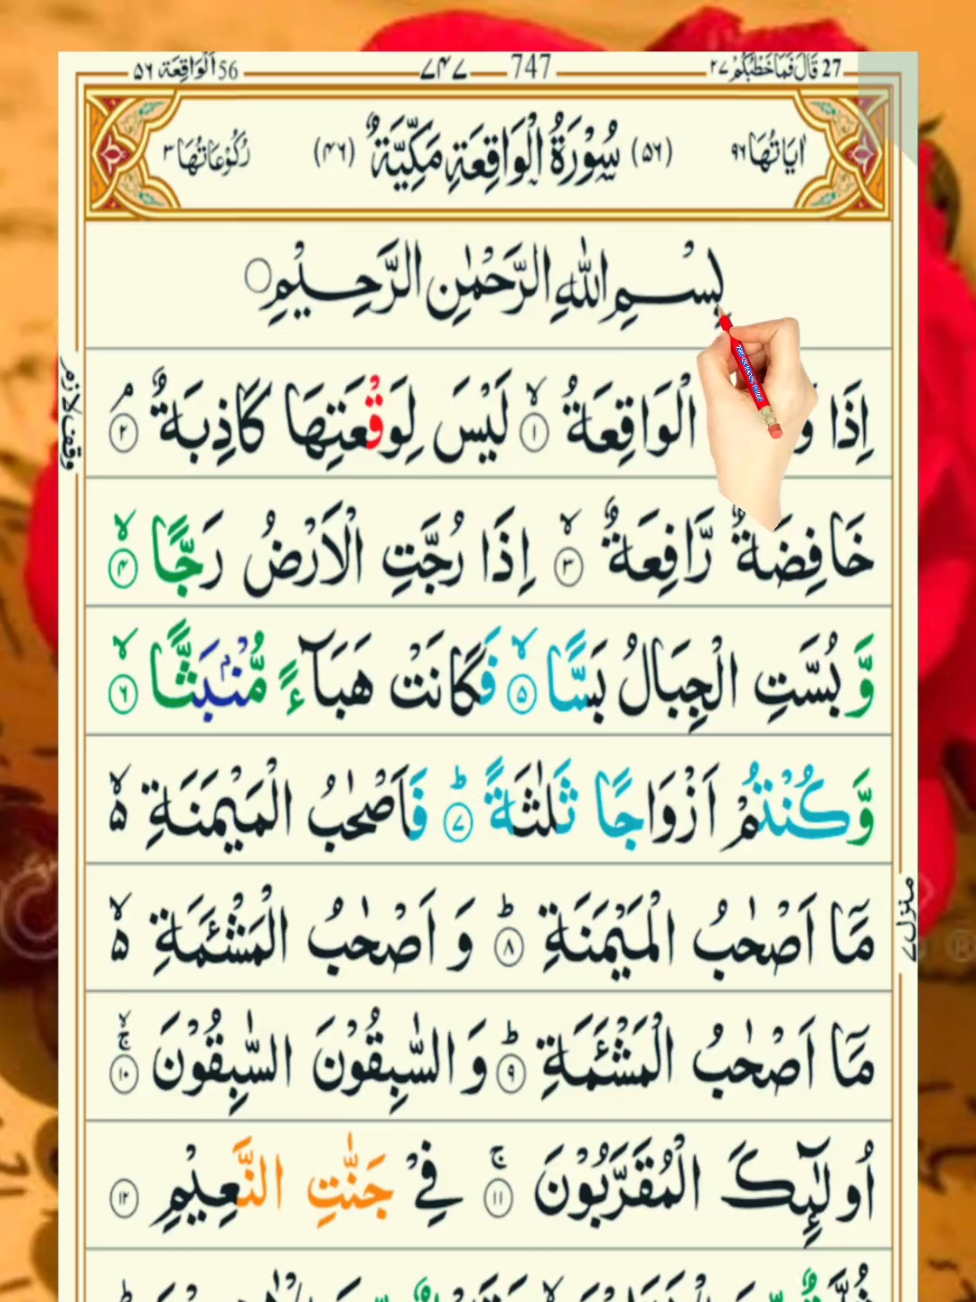 27 قَالَ فَمَا خَطْبُكُمْ ٢٧
747 ٧٤٧
56 اَلْوَاقِعَة ٥٦
اٰيَاتُهَا ٩٦ (٥٦) سُوْرَةُ الْوَاقِعَةِ مَكِّيَّةٌ (٤٦) رُكُوْعَاتُهَا ٣
بِسْمِ اللّٰهِ الرَّحْمٰنِ الرَّحِيْمِ
اِذَا وَ الْوَاقِعَةُ ۙ ١ لَيْسَ لِوَقْعَتِهَا كَاذِبَةٌ ۘ ٢
وقف لازم
خَافِضَةٌ رَّافِعَةٌ ۙ ٣ اِذَا رُجَّتِ الْاَرْضُ رَجًّا ۙ ٤
وَّ بُسَّتِ الْجِبَالُ بَسًّا ۙ ٥ فَكَانَتْ هَبَآءً مُّنْۢبَثًّا ۙ ٦
وَّ كُنْتُمْ اَزْوَاجًا ثَلٰثَةً ؕ ٧ فَاَصْحٰبُ الْمَيْمَنَةِ ۙ۬
مَاۤ اَصْحٰبُ الْمَيْمَنَةِ ؕ ٨ وَ اَصْحٰبُ الْمَشْـَٔمَةِ ۙ۬
منزل ٧
مَاۤ اَصْحٰبُ الْمَشْـَٔمَةِ ؕ ٩ وَ السّٰبِقُوْنَ السّٰبِقُوْنَ ۚۙ ١٠
اُولٰٓىِٕكَ الْمُقَرَّبُوْنَ ۚ ١١ فِيْ جَنّٰتِ النَّعِيْمِ ١٢